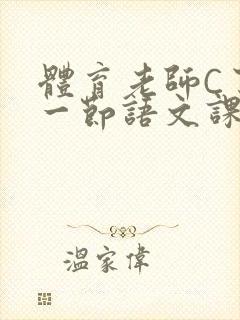 體育老師C
一節語文課
溫家偉